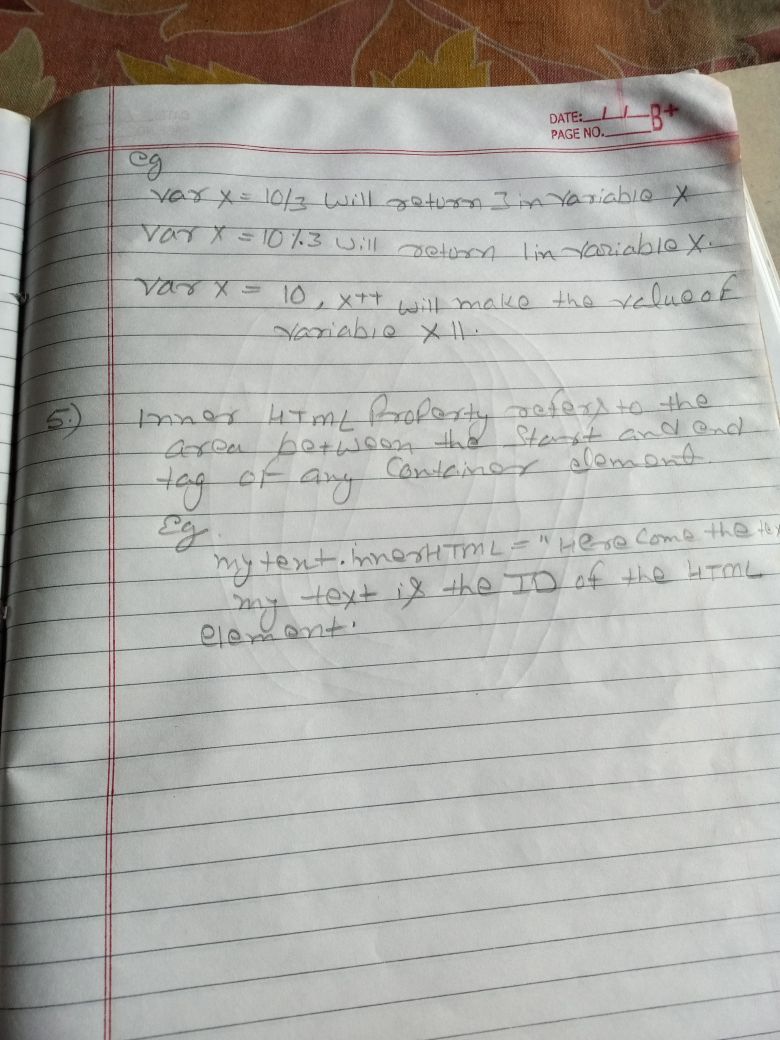 DATE: / / B+
PAGE NO.
eg
var x = 10/3 will return 3 in variable x
var x = 10 %3 will return 1 in variable x.
var x = 10, x++ will make the value of
variable x 11.
5.) Inner HTML Property refers to the
area between the start and end
tag of any Container element.
Eg.
my text.innerHTML = "Here Come the
my text is the ID of the HTML
element.